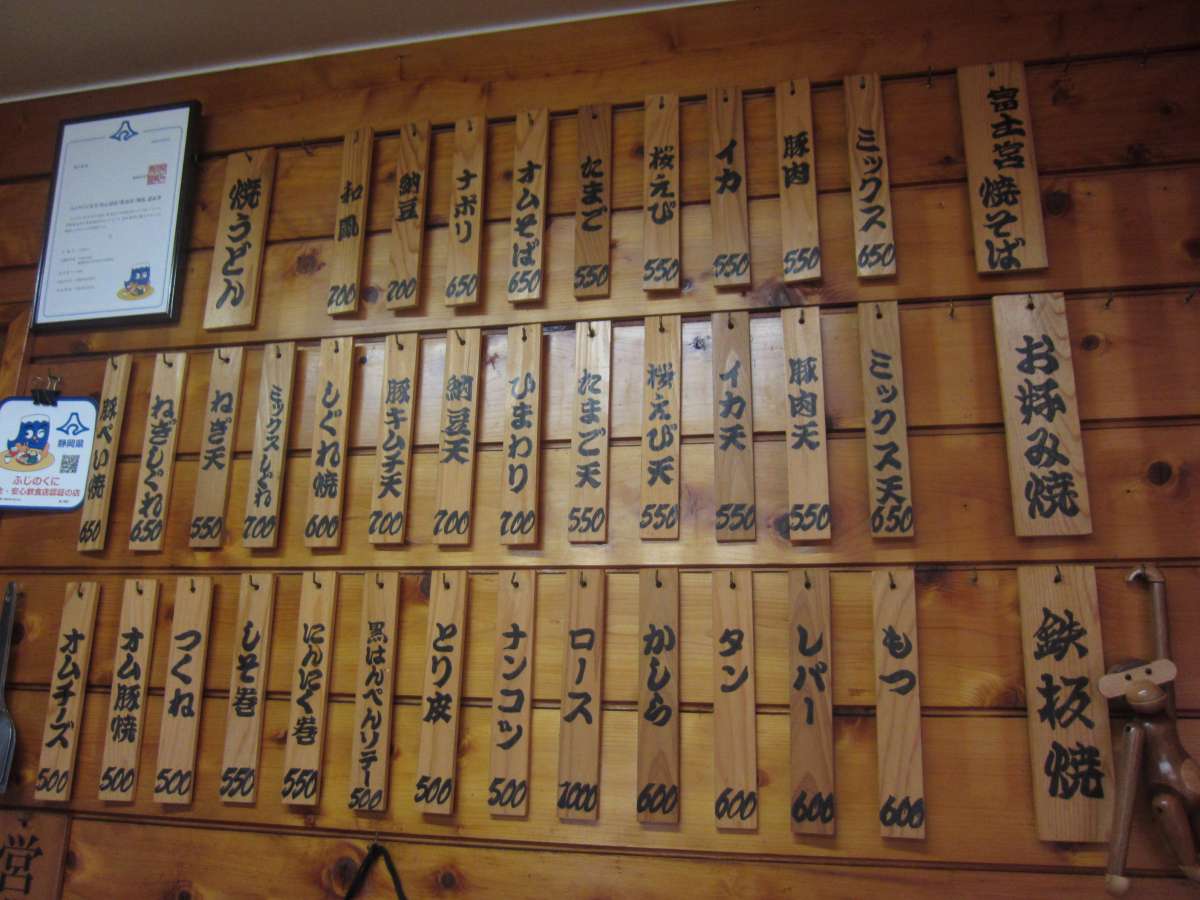 富士宮焼そば
ミックス 650
豚肉 550
イカ 550
桜えび 550
たまご 550
オムそば 650
ナポリ 650
納豆 700
和風 700
焼うどん
お好み焼
ミックス天 650
豚肉天 550
イカ天 550
桜えび天 550
たまご天 550
ひまわり 700
納豆天 700
豚キムチ天 700
しぐれ焼 600
ミックスしぐれ 700
ねぎ天 550
ねぎしぐれ 650
豚ぺい焼 650
鉄板焼
もつ 600
レバー 600
タン 600
かしら 600
ロース 1000
ナンコツ 500
とり皮 500
黒はんぺんソテー 500
にんにく巻 550
しそ巻 550
つくね 500
オム豚焼 500
オムチーズ 500
静岡県
ふじのくに
安心飲食店認証の店
営